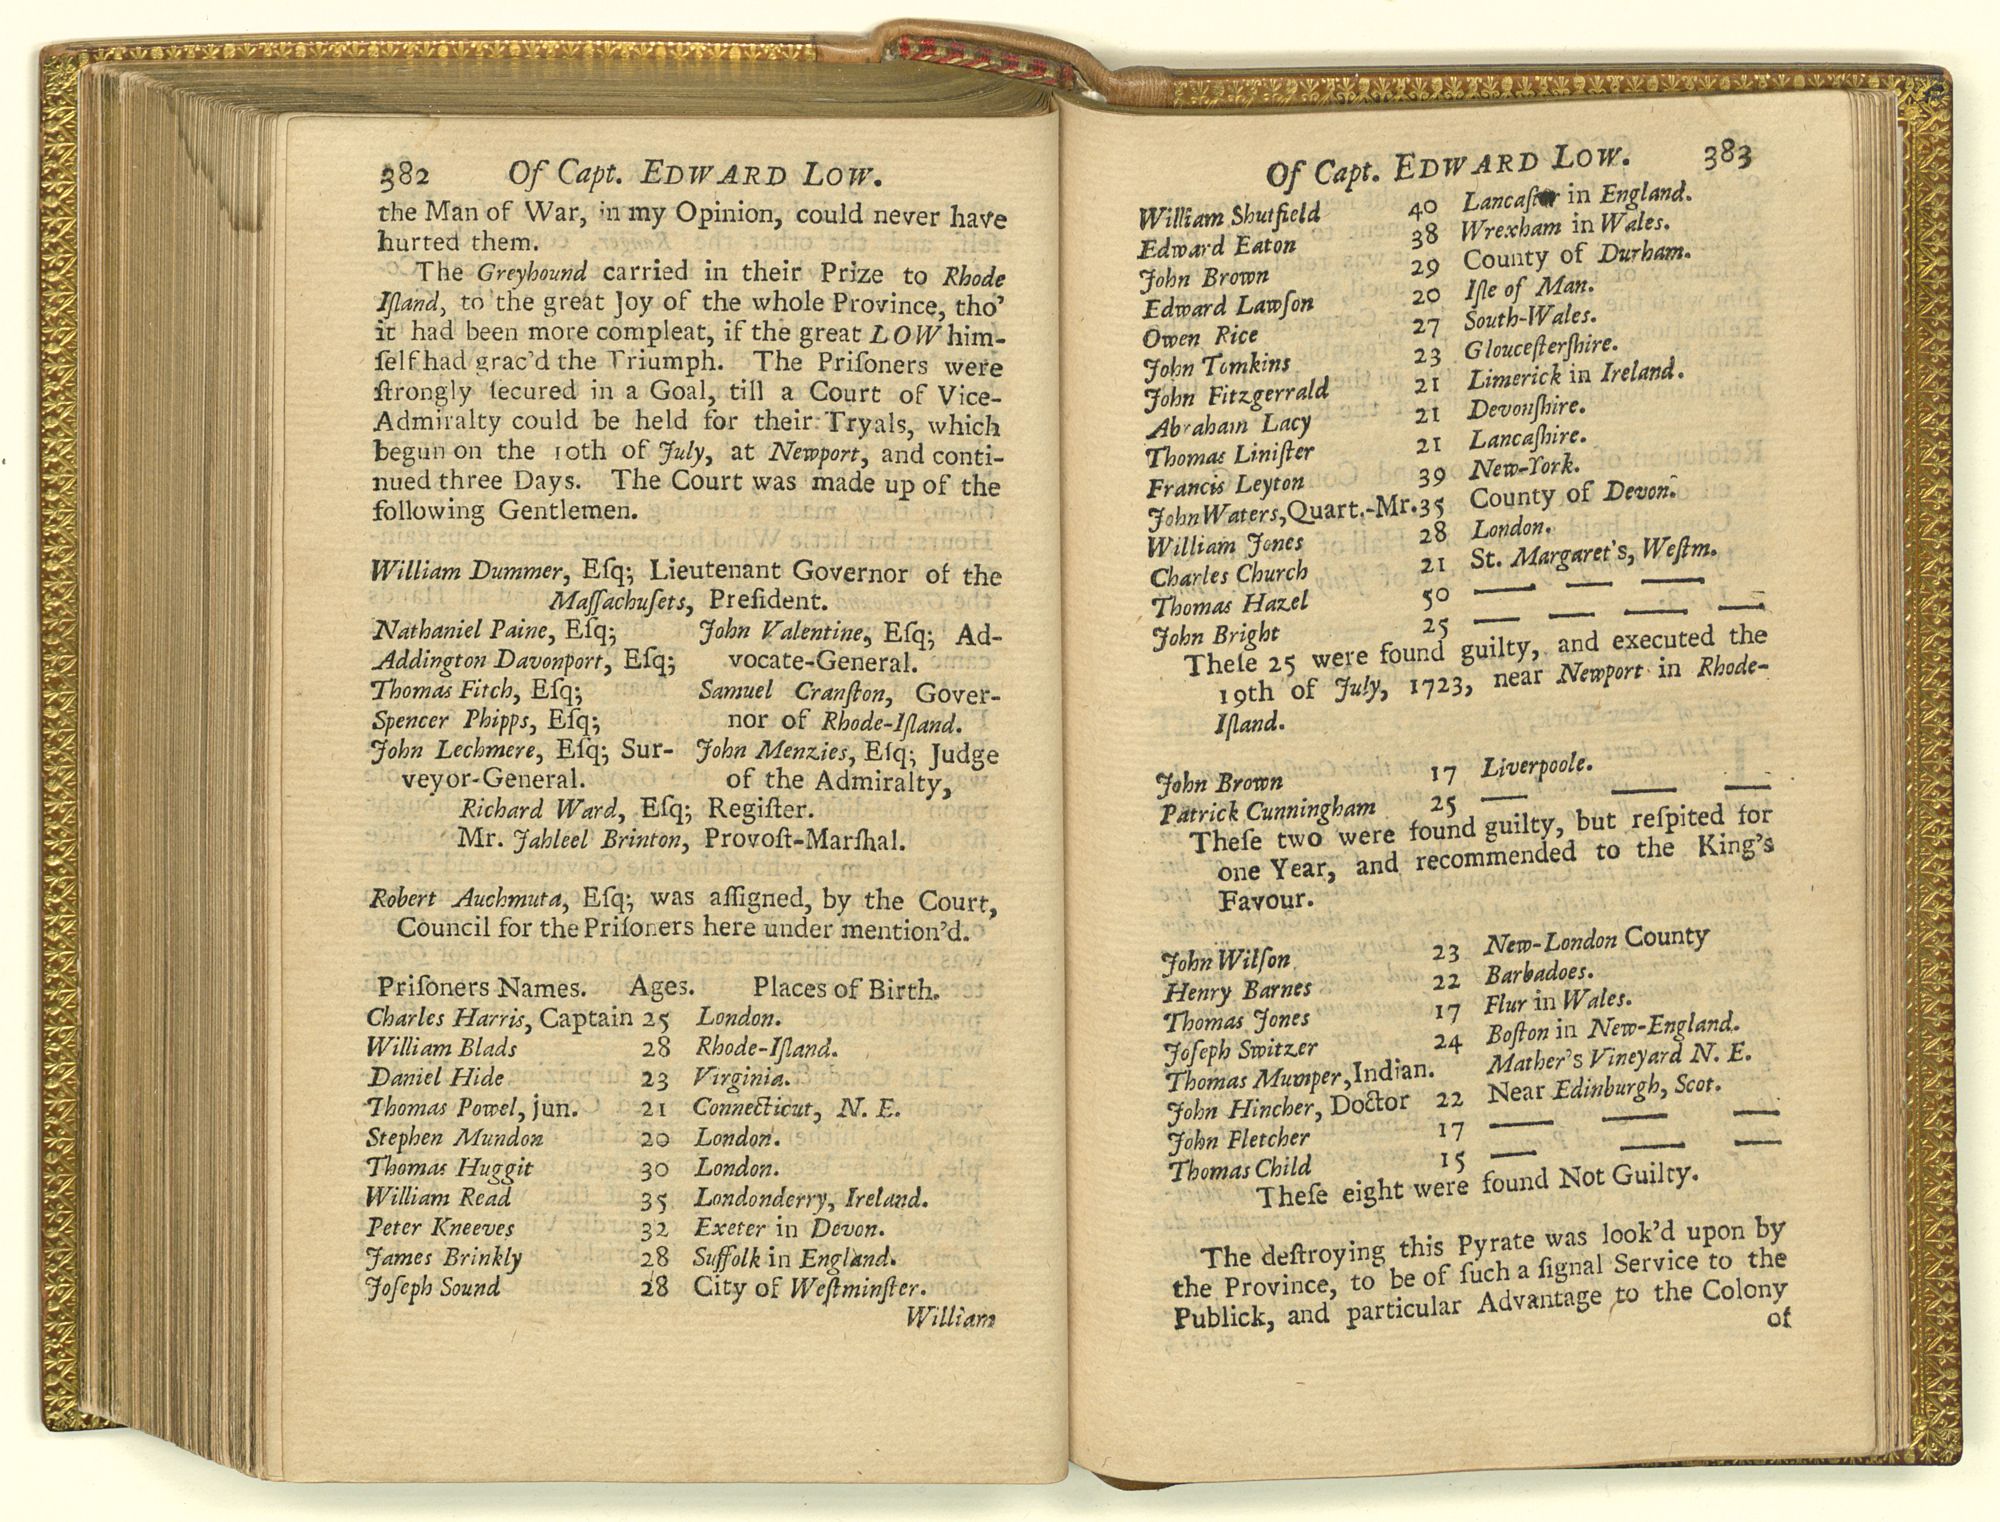 382 Of Capt. EDWARD LOW.
the Man of War, in my Opinion, could never have
hurted them.
The Greyhound carried in their Prize to Rhode
Iſland, to the great Joy of the whole Province, tho'
it had been more compleat, if the great LOW him-
ſelf had grac'd the Triumph. The Priſoners were
ſtrongly ſecured in a Goal, till a Court of Vice-
Admiralty could be held for their Tryals, which
begun on the 10th of July, at Newport, and conti-
nued three Days. The Court was made up of the
following Gentlemen.
William Dummer, Eſq; Lieutenant Governor of the
Maſſachuſets, Preſident.
Nathaniel Paine, Eſq; John Valentine, Eſq; Ad-
Addington Davonport, Eſq; vocate-General.
Thomas Fitch, Eſq; Samuel Cranſton, Gover-
Spencer Phipps, Eſq; nor of Rhode-Iſland.
John Lechmere, Eſq; Sur- John Menzies, Eſq; Judge
veyor-General. of the Admiralty,
Richard Ward, Eſq; Regiſter.
Mr. Jahleel Brinton, Provoſt-Marſhal.
Robert Auchmuta, Eſq; was aſſigned, by the Court,
Council for the Priſoners here under mention'd.
Priſoners Names. Ages. Places of Birth.
Charles Harris, Captain 25 London.
William Blads 28 Rhode-Iſland.
Daniel Hide 23 Virginia.
Thomas Powel, jun. 21 Connecticut, N. E.
Stephen Mundon 20 London.
Thomas Huggit 30 London.
William Read 35 Londonderry, Ireland.
Peter Kneeves 32 Exeter in Devon.
James Brinkly 28 Suffolk in England.
Joſeph Sound 28 City of Weſtminſter.
William
Of Capt. EDWARD LOW. 383
William Shutfield 40 Lancaſter in England.
Edward Eaton 38 Wrexham in Wales.
John Brown 29 County of Durham.
Edward Lawſon 20 Iſle of Man.
Owen Rice 27 South-Wales.
John Tomkins 23 Glouceſterſhire.
John Fitzgerrald 21 Limerick in Ireland.
Abraham Lacy 21 Devonſhire.
Thomas Liniſter 21 Lancaſhire.
Francis Leyton 39 New-York.
John Waters, Quart.-Mr. 35 County of Devon.
William Jones 28 London.
Charles Church 21 St. Margaret's, Weſtm.
Thomas Hazel 50 — — —
John Bright 25 — — — —
Theſe 25 were found guilty, and executed the
19th of July, 1723, near Newport in Rhode-
Iſland.
John Brown 17 Liverpoole.
Patrick Cunningham 25 — — —
Theſe two were found guilty, but reſpited for
one Year, and recommended to the King's
Favour.
John Wilſon 23 New-London County
Henry Barnes 22 Barbadoes.
Thomas Jones 17 Flur in Wales.
Joſeph Switzer 24 Boſton in New-England.
Thomas Mumper, Indian. Mather's Vineyard N. E.
John Hincher, Doctor 22 Near Edinburgh, Scot.
John Fletcher 17 — — —
Thomas Child 15 — — —
Theſe eight were found Not Guilty.
The deſtroying this Pyrate was look'd upon by
the Province, to be of ſuch a ſignal Service to the
Publick, and particular Advantage to the Colony
of